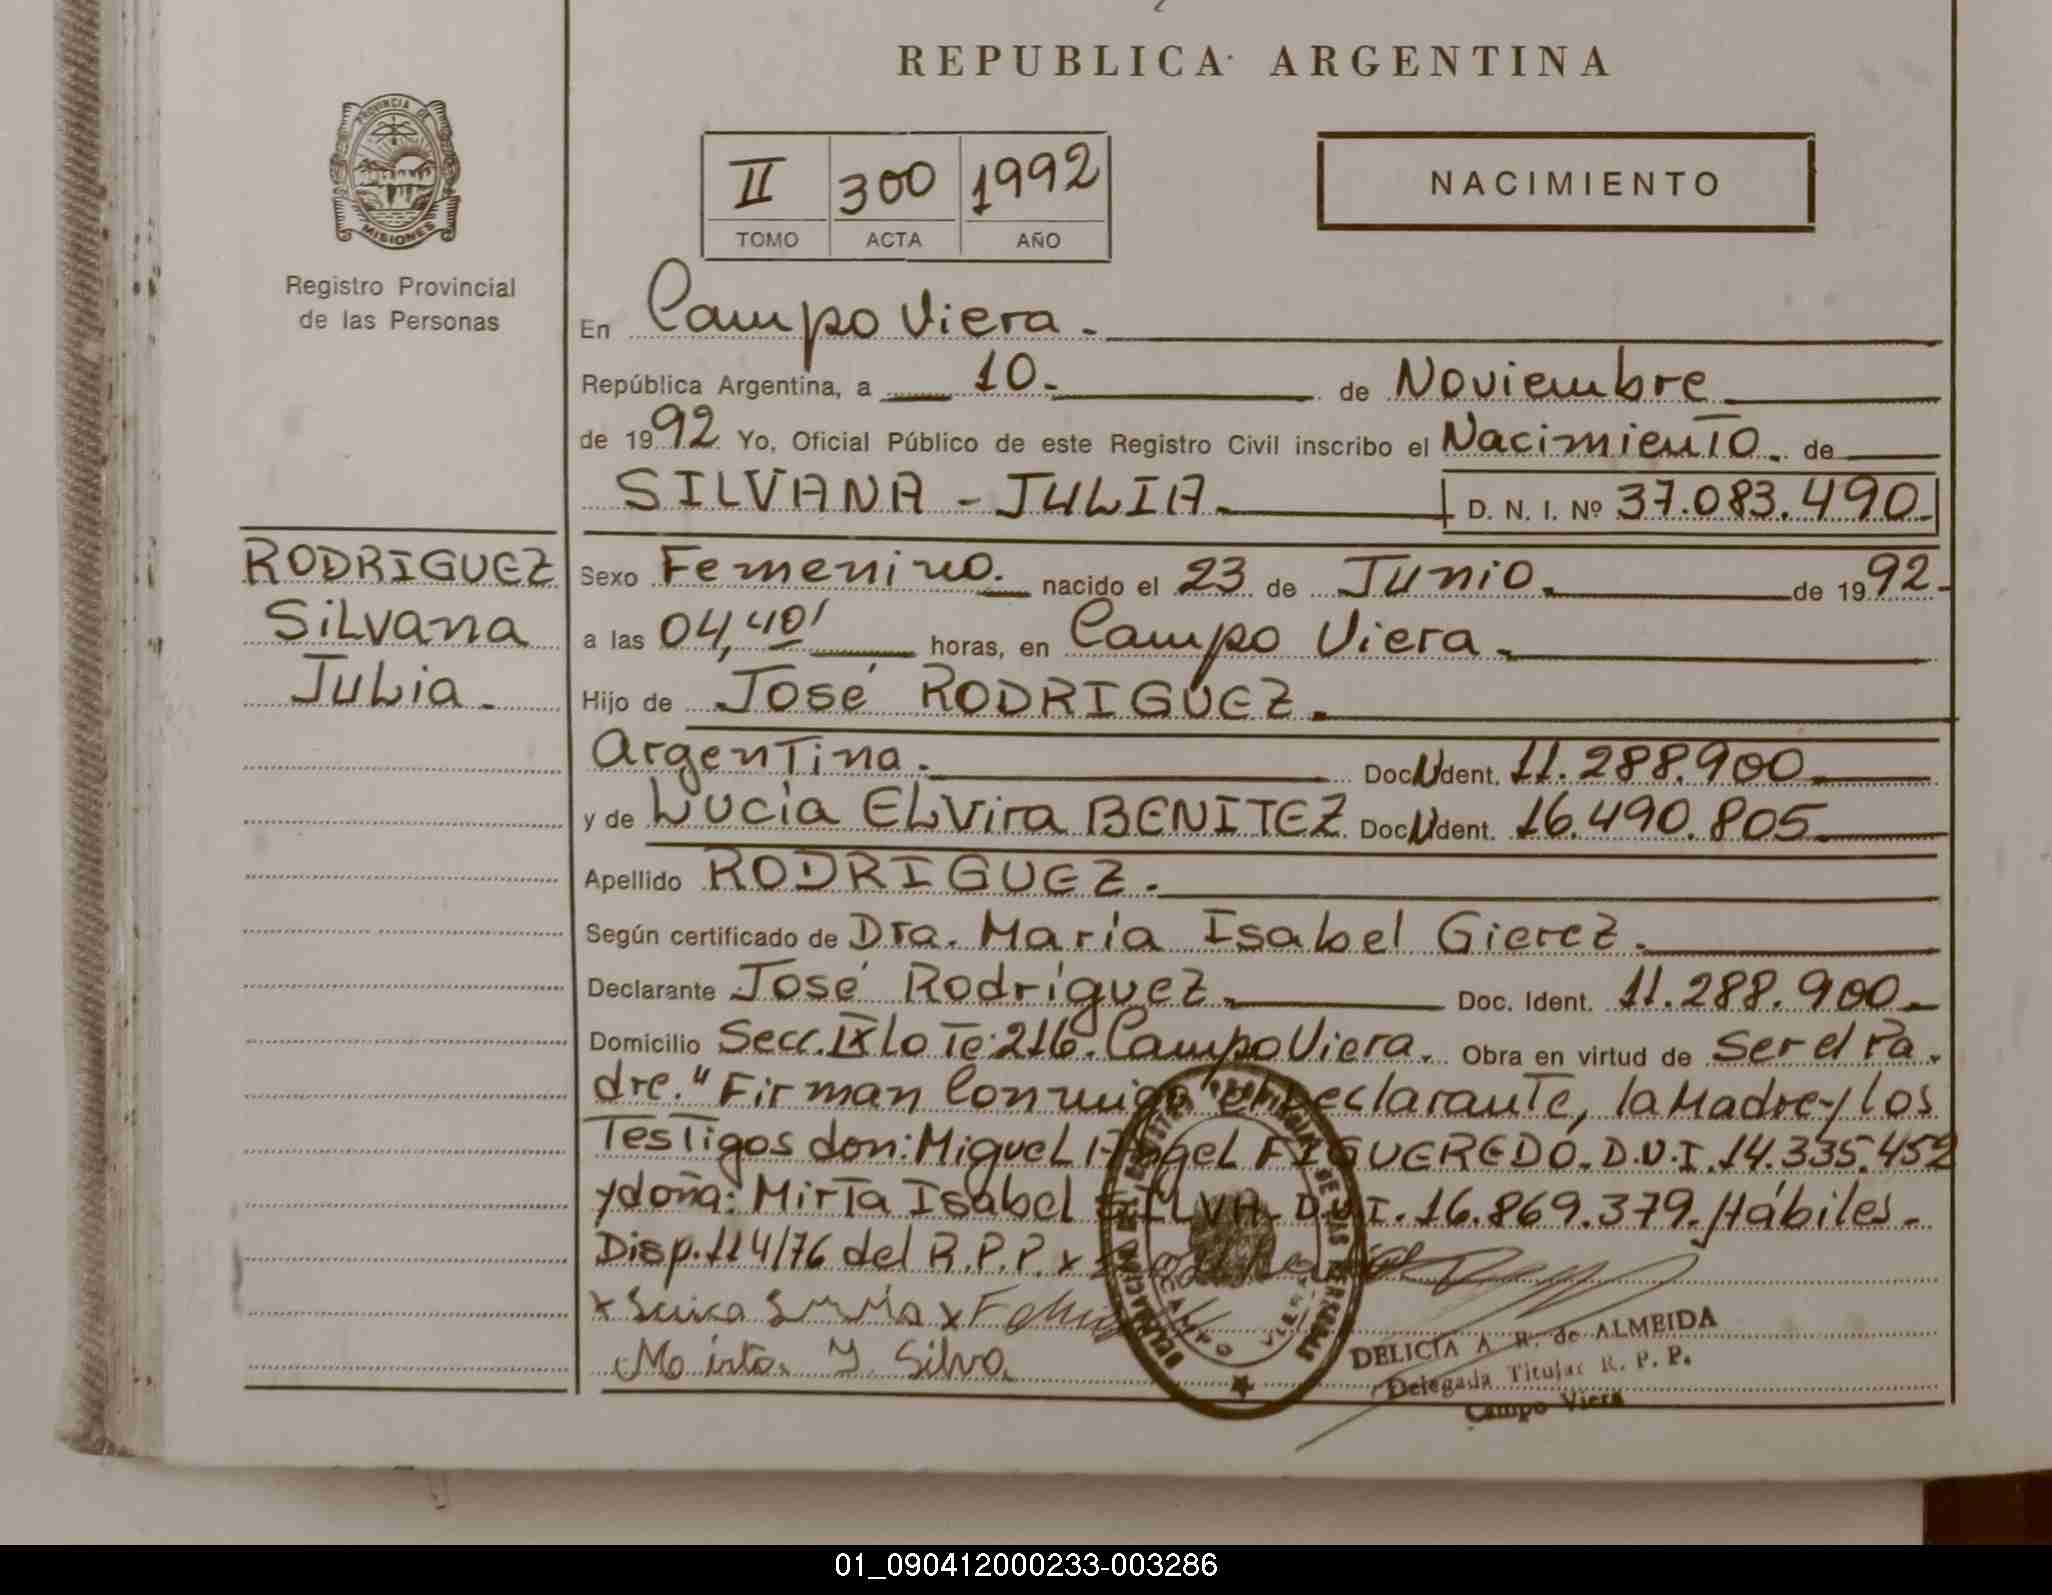 REPUBLICA ARGENTINA
PROVINCIA DE
MISIONES
Registro Provincial
de las Personas
II 300 1992
TOMO ACTA AÑO
NACIMIENTO
En Campo Viera.
República Argentina, a 10. de Noviembre
de 1992 Yo, Oficial Público de este Registro Civil inscribo el Nacimiento. de
SILVANA - JULIA. D. N. I. Nº 37.083.490.
RODRIGUEZ
Silvana
Julia.
Sexo Femenino. nacido el 23 de Junio. de 1992.
a las 04,40' horas, en Campo Viera.
Hijo de José RODRIGUEZ.
Argentina. Doc. Ident. 11.288.900
y de Lucía ELVira BENITEZ. Doc. Ident. 16.490.805
Apellido RODRIGUEZ.
Según certificado de Dra. María Isabel Gierez.
Declarante José Rodríguez. Doc. Ident. 11.288.900
Domicilio Secc. IX Lote: 216. Campo Viera. Obra en virtud de ser el Pa.
dre." Firman Conmigo el Declarante, la Madre y los
Testigos don: Miguel Angel FIGUEREDO. D.N.I. 14.335.452
y doña: Mirta Isabel SILVA. D.N.I. 16.869.379. Hábiles.
Disp. 114/76 del R.P.P. x
Mirta Y. Silva
DELICIA A. R. de ALMEIDA
Delegada Titular R. P. P.
Campo Viera
01_090412000233-003286